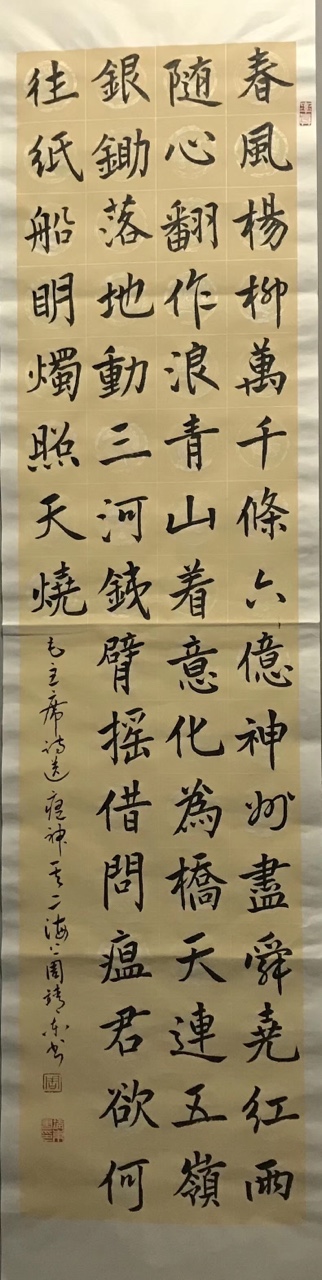 春風楊柳萬千條六億神州盡舜堯紅雨
随心翻作浪青山着意化為橋天連五嶺
銀鋤落地動三河銕臂摇借問瘟君欲何
往紙船明燭照天燒
毛主席诗送瘟神其二海上周靖东书
周